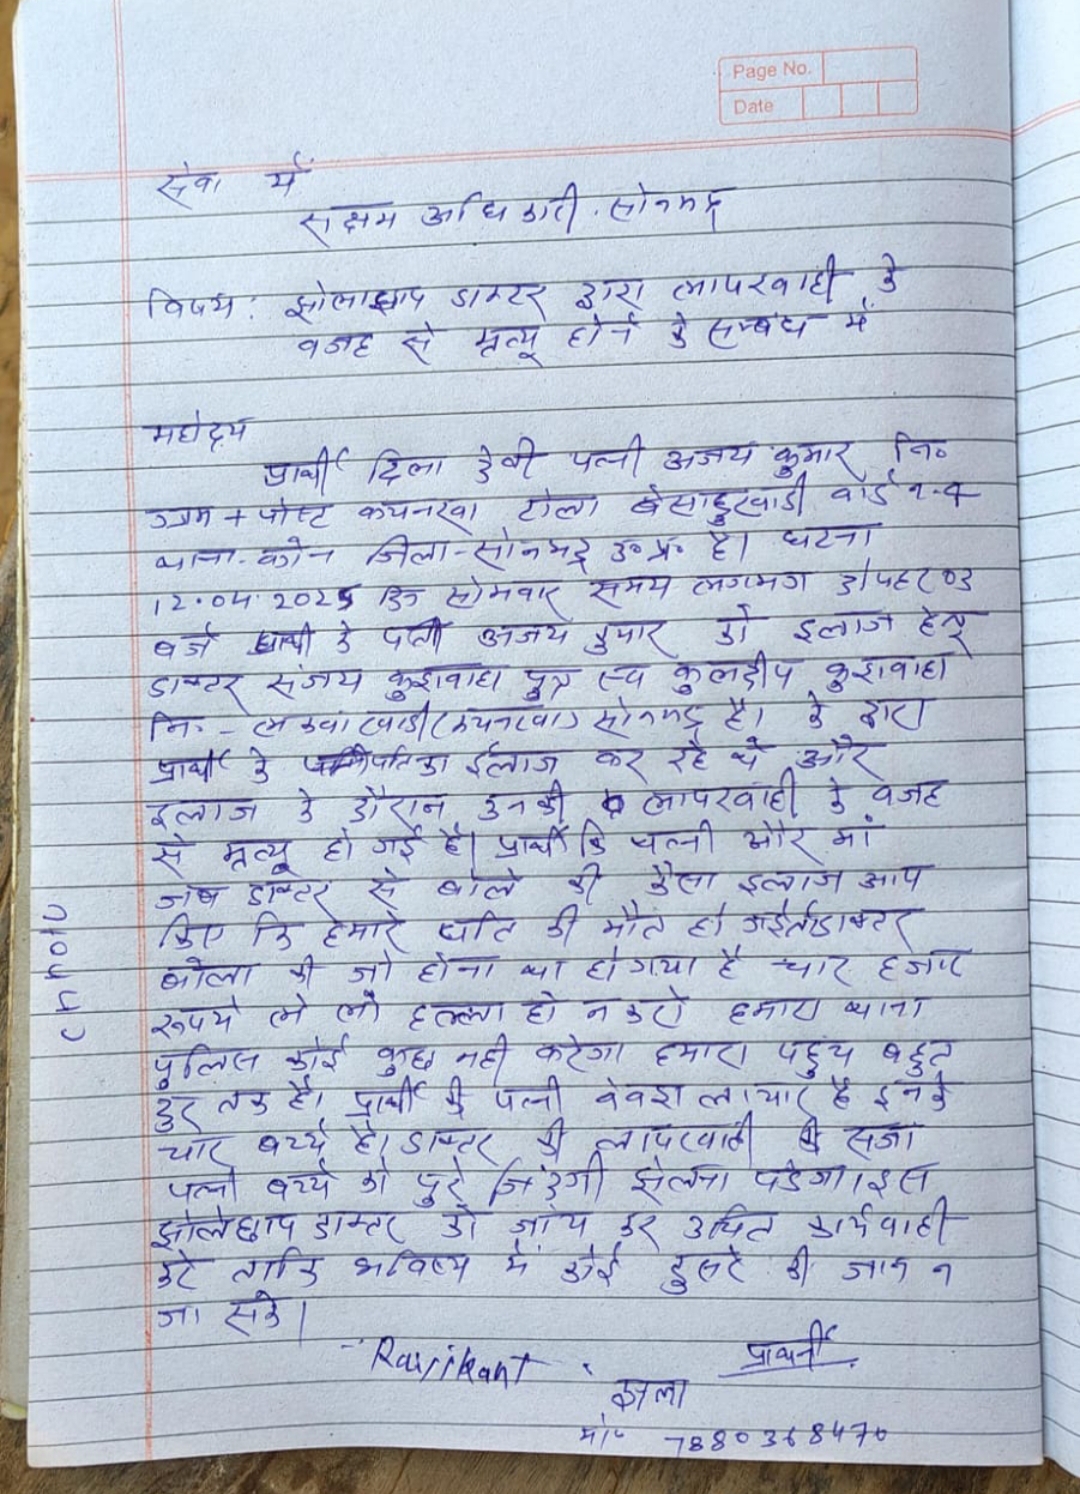 Page No.
Date
सेवा में
सक्षम अधिकारी, सोनभद्र
विषय: झोलाछाप डाक्टर द्वारा लापरवाही के
वजह से मृत्यू होने के सम्बंध में
महोदय
प्रार्थी दिला देवी पत्नी अजय कुमार नि०
ग्राम + पोस्ट कचनरवा टोला वार्ड
थाना-कोन जिला-सोनभद्र उ०प्र० है। घटना
12.04.2025 दिन सोमवार समय लगभग दोपहर 03
बजे प्रार्थी के पती अजय कुमार को इलाज हेतू
डाक्टर संजय कुशवाहा पुत्र स्व कुलदीप कुशवाहा
नि०- (कचनरवा) सोनभद्र है। के द्वारा
प्रार्थी के पति का ईलाज कर रहे थे और
इलाज के दौरान उनकी लापरवाही के वजह
से मृत्यू हो गई है। प्रार्थी कि पत्नी और मां
जब डाक्टर से बोले की कैसा इलाज आप
किए कि हमारे पति की मौत हो गई तो डाक्टर
बोला की जो होना था हो गया है चार हजार
रूपये ले लो हल्ला हो न करो हमारा थाना
पुलिस कोई कुछ नही करेगा हमारा पहुच बहुत
दुर तक है। प्रार्थी की पत्नी वेवश लाचार है इनके
चार बच्चे है। डाक्टर की लापरवाही की सजा
पत्नी बच्चे को पुरे जिंदगी झेलना पडेगा। इस
झोलेछाप डाक्टर को जांच कर उचित कार्यवाही
करे ताकि भविष्य में कोई दुसरे की जान न
जा सके।
Ravikant
प्रार्थनी
मो० 7880368470